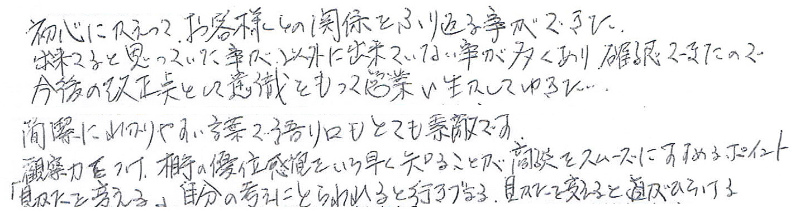 初心にかえって、お客様との関係をふり返る事ができた。
出来てると思っていた事が、以外に出来ていない事が多くあり確認できたので
今後の改正点として意識をもって営業に生かしてゆきたい。
簡潔にわかりやすい言葉で語り口もとても素敵です。
観察力をつけ、相手の優位感覚をいち早く知ることが商談をスムーズにすすめるポイント
「見かたを変える」自分の考えにとらわれると行きづまる、見かたを変えると道がひらける